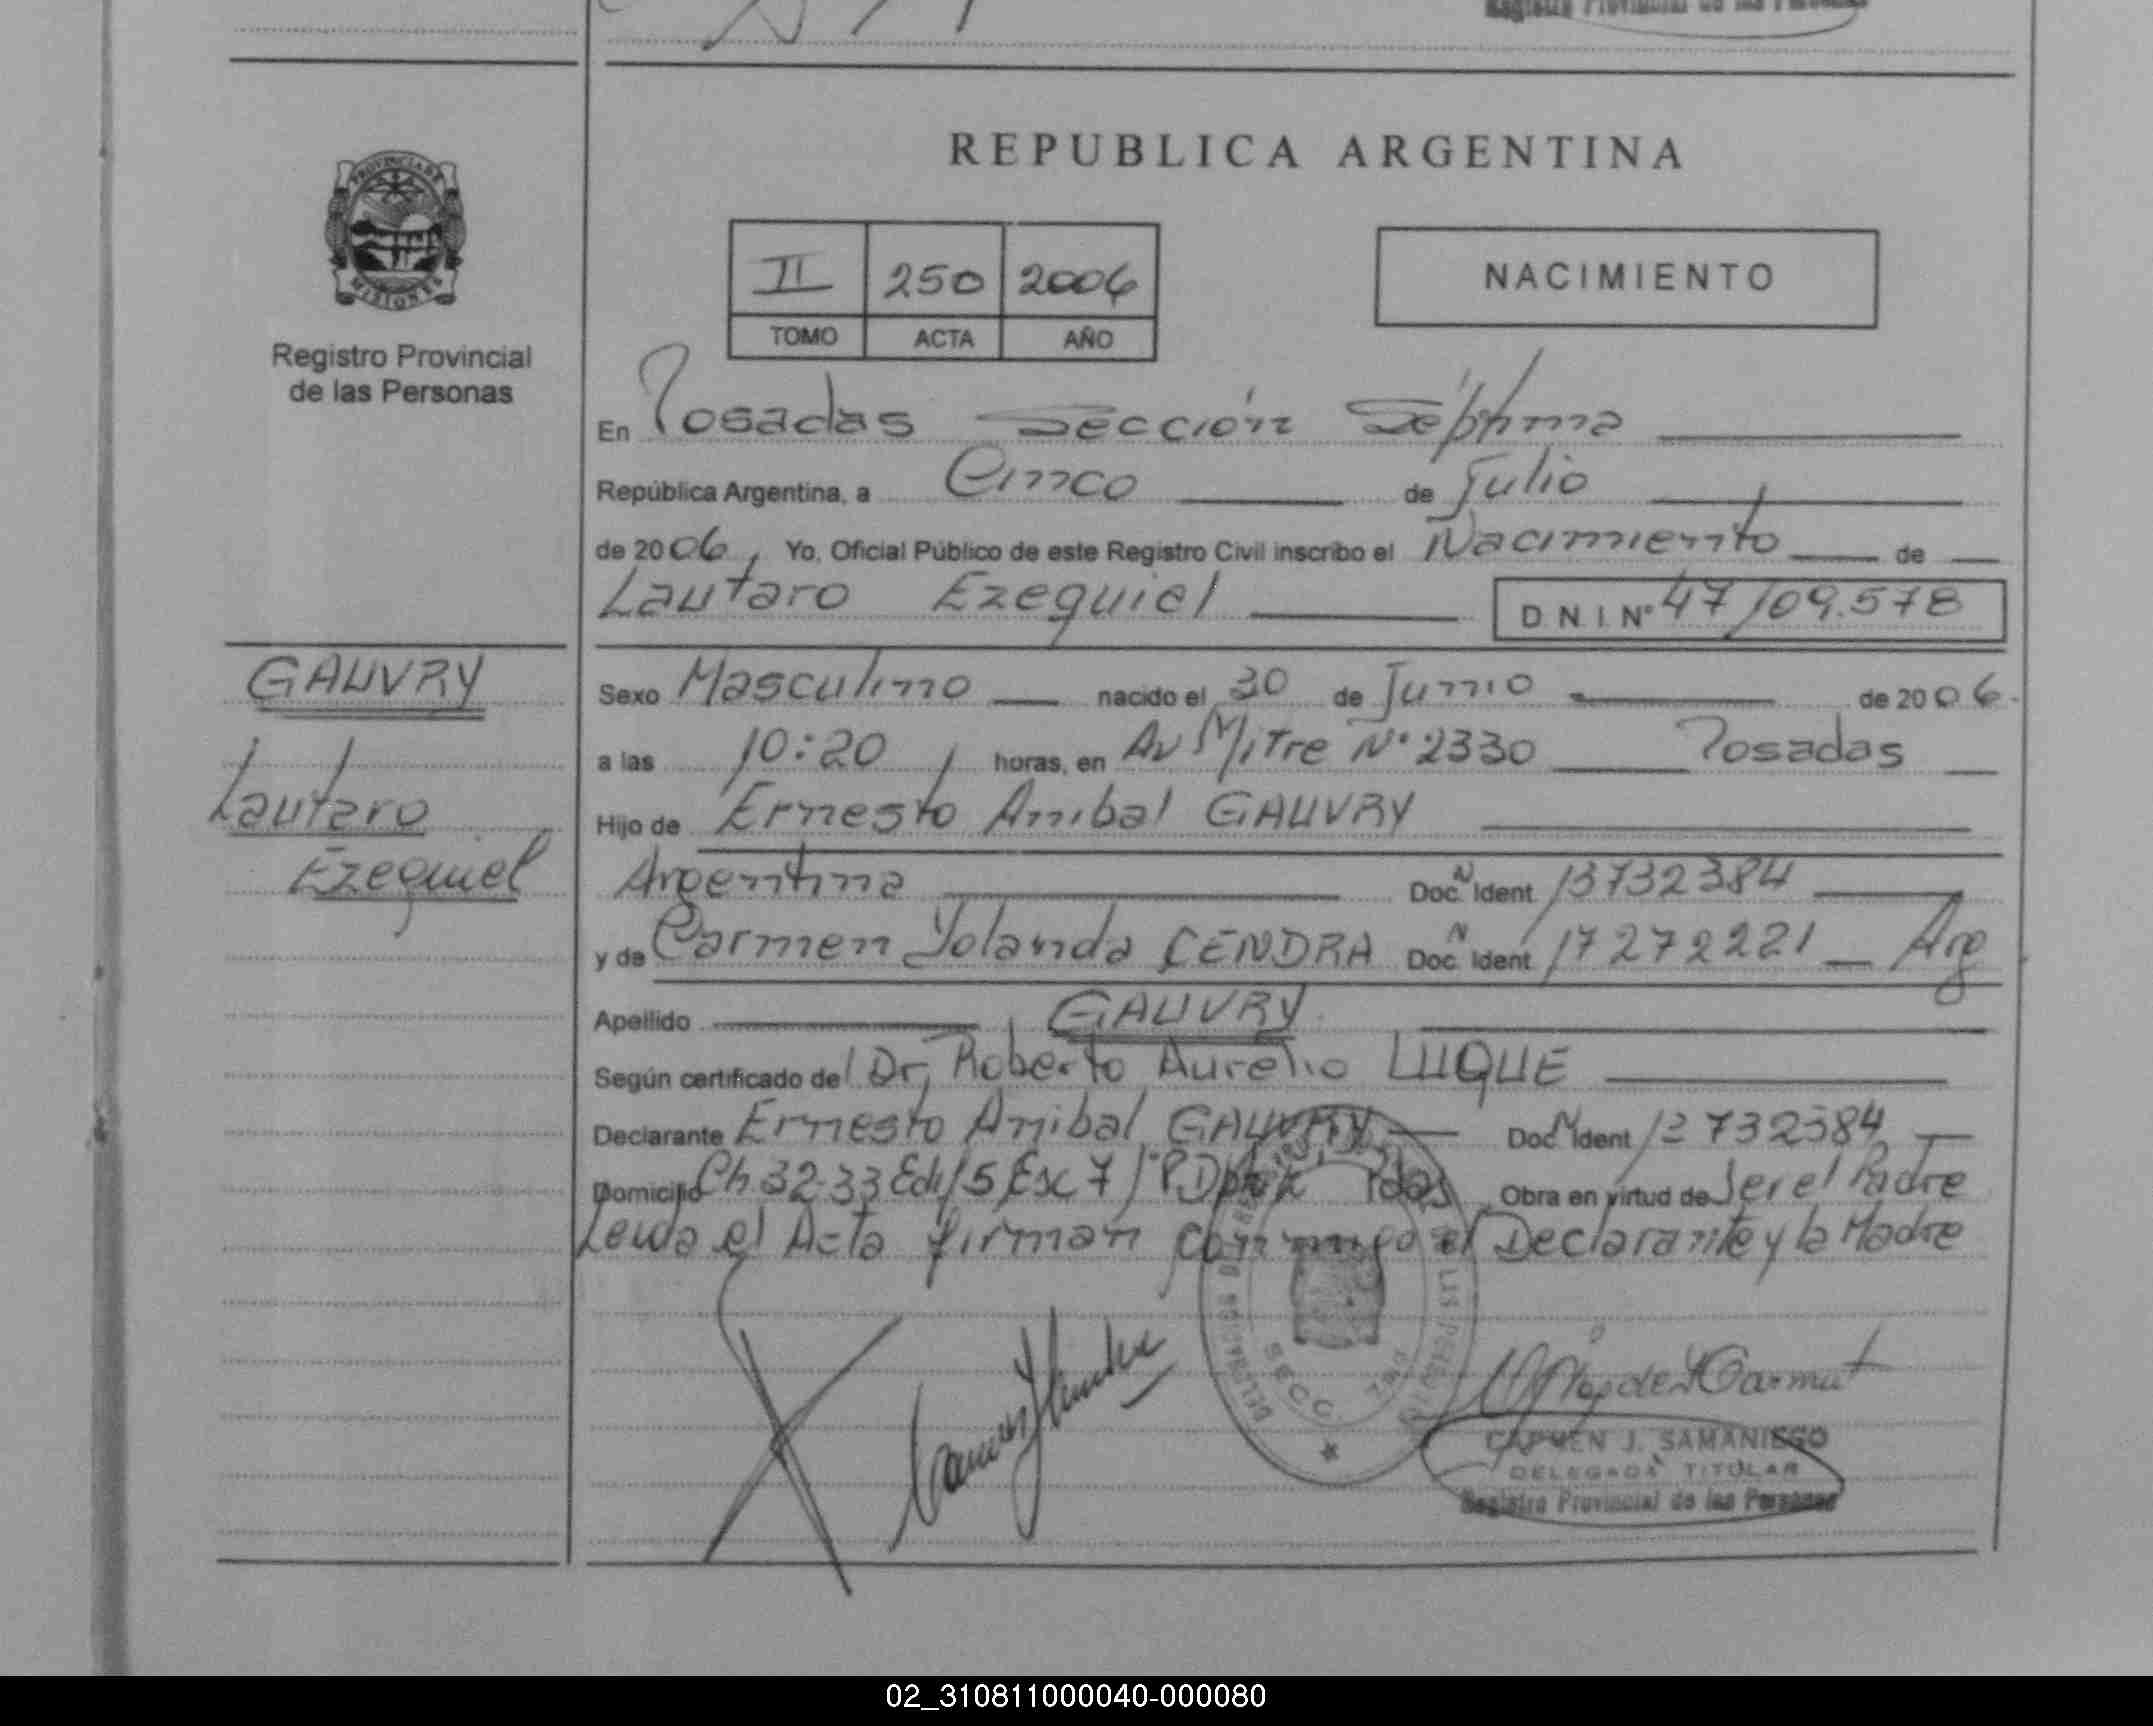 Registro Provincial de las Personas
PROVINCIA DE
MISIONES
Registro Provincial
de las Personas
REPUBLICA ARGENTINA
II 250 2006
TOMO ACTA AÑO
NACIMIENTO
En Posadas Sección Séptima
República Argentina, a Cinco de Julio
de 2006, Yo, Oficial Público de este Registro Civil inscribo el Nacimiento de
Lautaro Ezequiel D.N.I. Nº 47109.578
GAUVRY
Lautaro
Ezequiel
Sexo Masculino nacido el 30 de Junio de 2006.
a las 10:20 horas, en Av Mitre Nº 2330 Posadas
Hijo de Ernesto Anibal GAUVRY
Argentina Doc. N Ident. 13732384
y de Carmen Yolanda CENDRA Doc. N Ident. 17272221 Arg
Apellido GAUVRY
Según certificado del Dr, Roberto Aurelio LUQUE
Declarante Ernesto Anibal GAUVRY Doc. N Ident. 13732384
Domicilio Ch. 32-33 Edif 5 Esc 7 1º P Dpto Pdas Obra en virtud de Ser el Padre
Leida el Acta firman conmigo el Declarante y la Madre
SECC.
CARMEN J. SAMANIEGO
DELEGADA TITULAR
Registro Provincial de las Personas
02_310811000040-000080